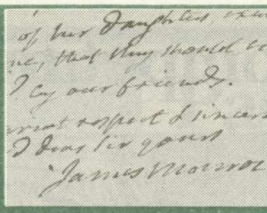 of her daughters,
that they should
our friends.
respect & sincer
dear Sir yours
James Monroe